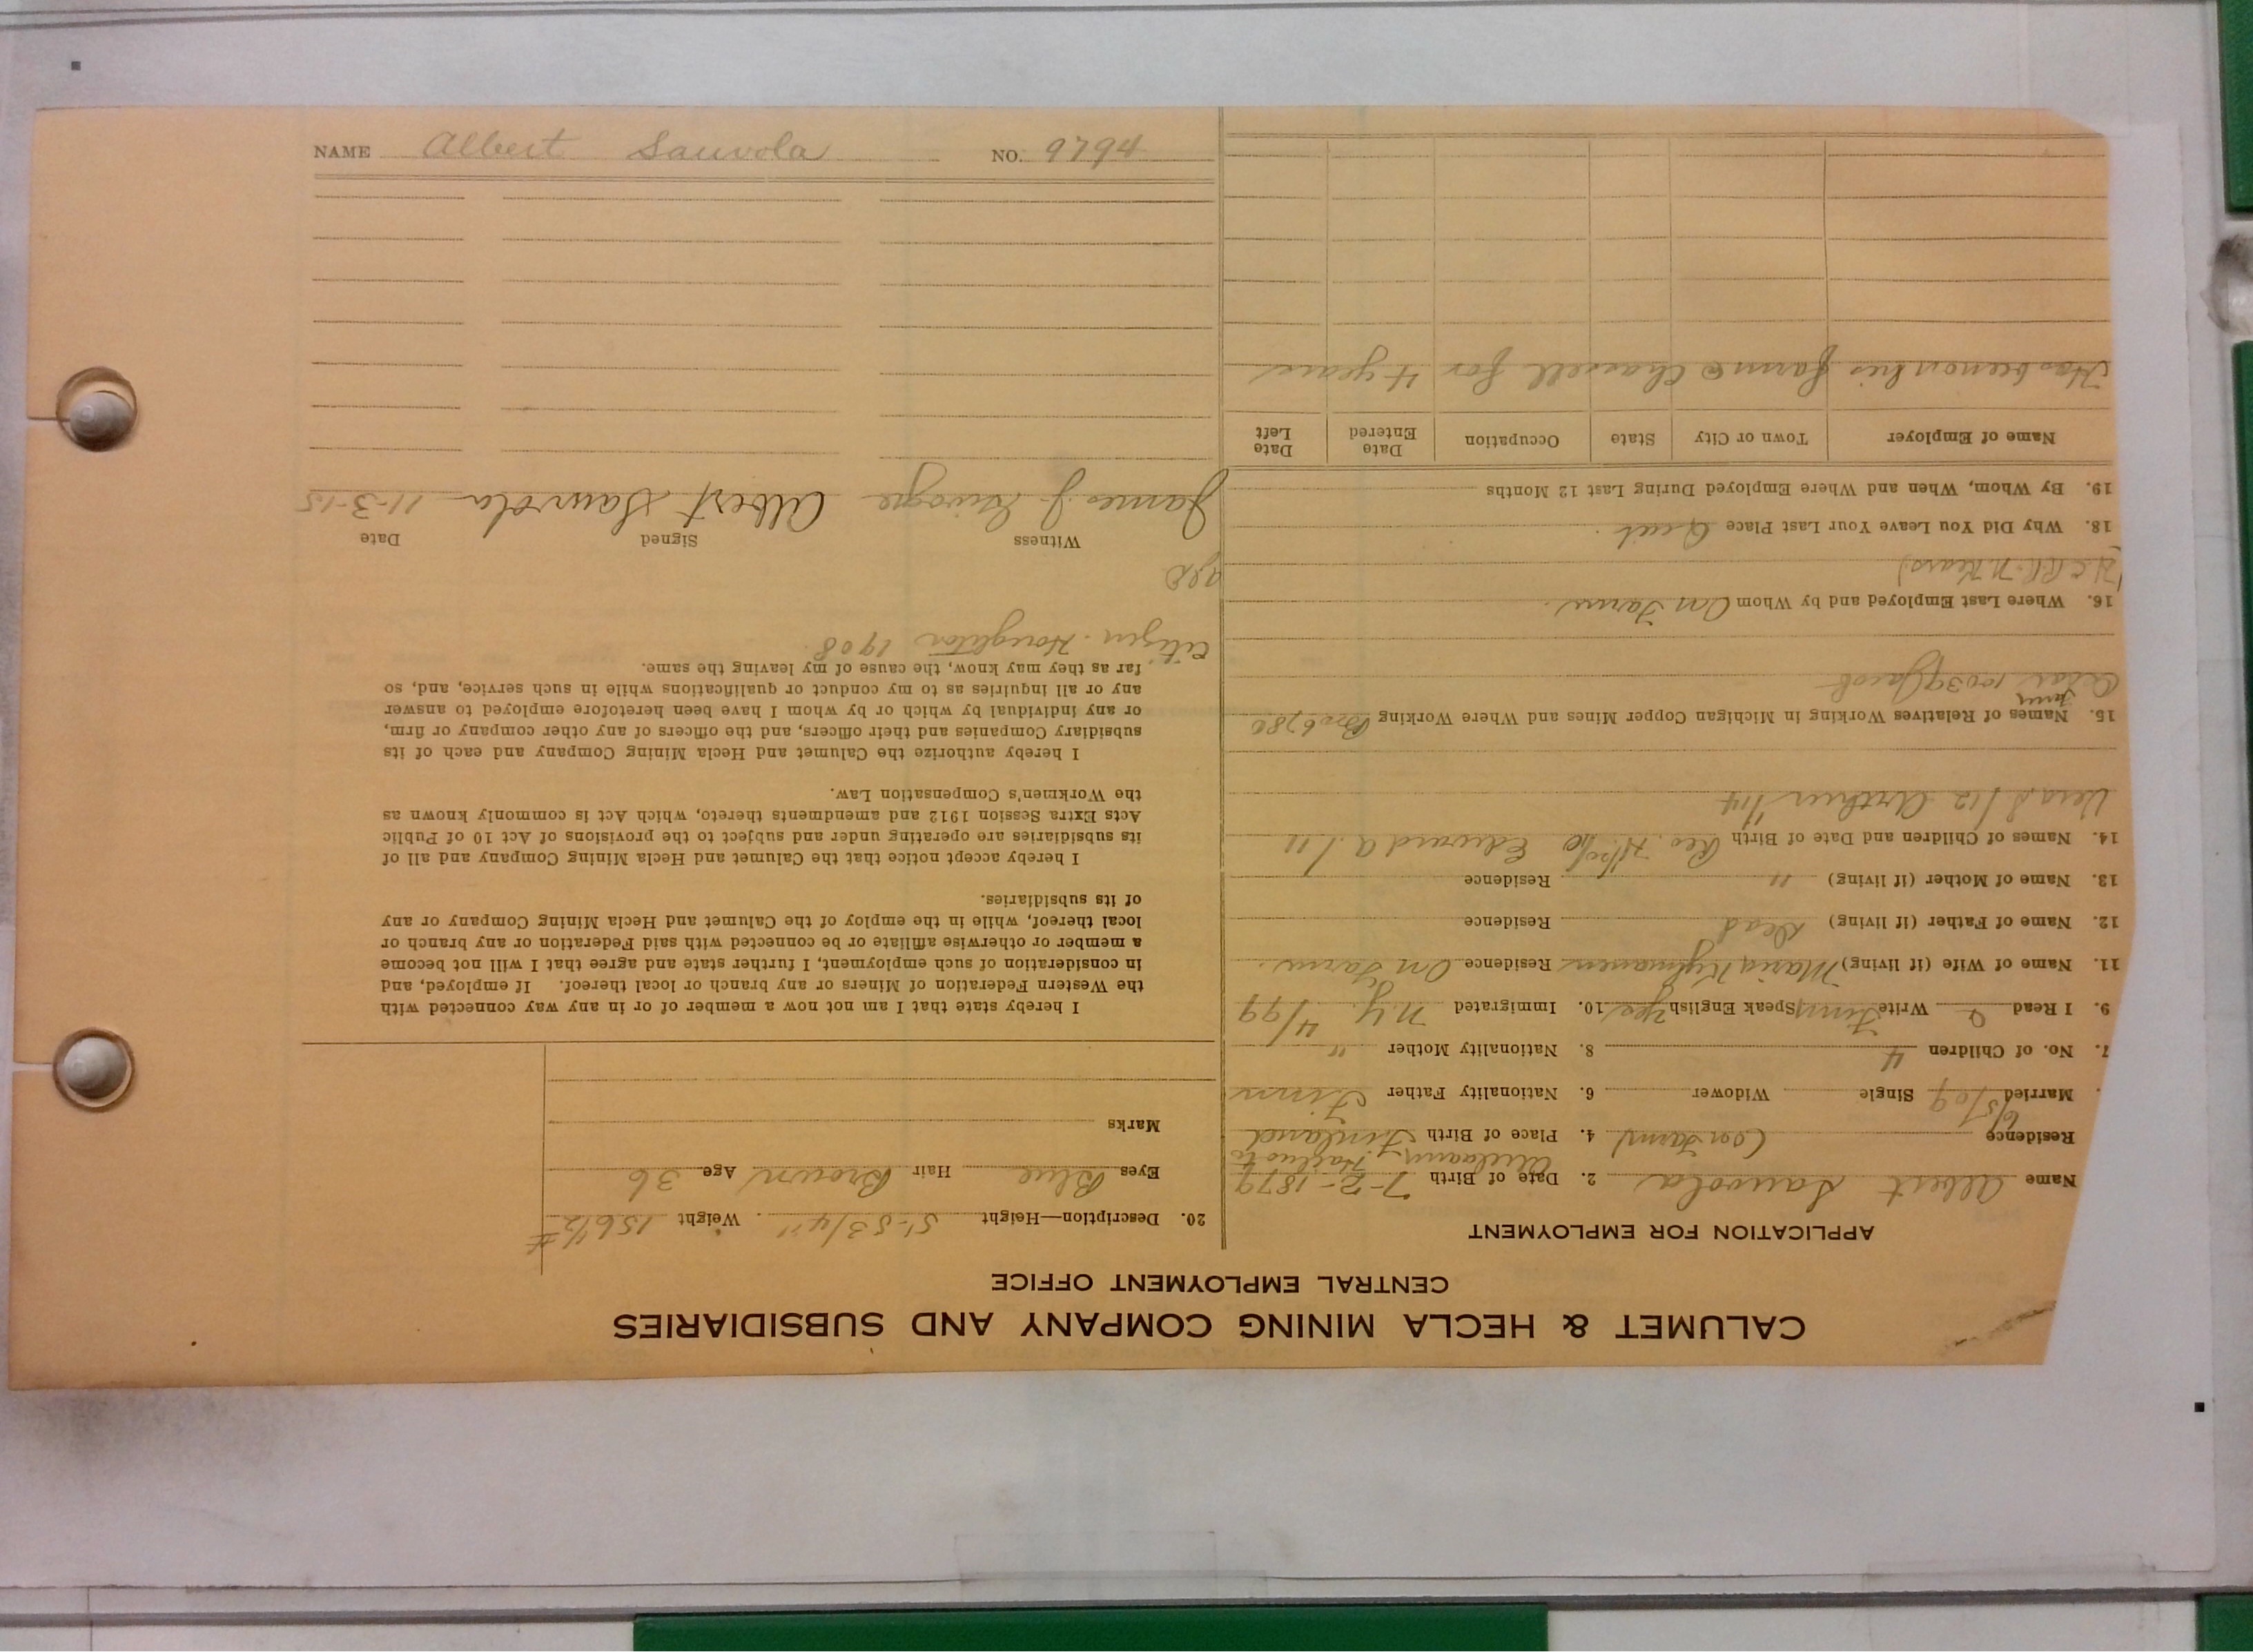 CALUMET & HECLA MINING COMPANY AND SUBSIDIARIES
CENTRAL EMPLOYMENT OFFICE
APPLICATION FOR EMPLOYMENT
Name Albert Sauvola 2. Date of Birth 7-2-1879
Residence (on farm) 4. Place of Birth Finland
Married 6/5/09 Single Widower 6. Nationality Father Finn
7. No. of Children 4 8. Nationality Mother "
9. I Read & Write Finn Speak English yes 10. Immigrated N.Y. 4/99
11. Name of Wife (if living) Maria Residence On Farm.
12. Name of Father (if living) Dead Residence
13. Name of Mother (if living) " Residence
14. Names of Children and Date of Birth Edward a/11
/12 Arthur 1/14
15. Names of Relatives Working in Michigan Copper Mines and Where Working Bro 6780
10039 Jacob
16. Where Last Employed and by Whom On Farm.
18. Why Did You Leave Your Last Place Quit.
19. By Whom, When and Where Employed During Last 12 Months
Name of Employer Town or City State Occupation Date Entered Date Left
Has been on his farm @ Chassell for 4 years
20. Description—Height 5'-5 3/4" Weight 156 1/2 #
Eyes Blue Hair Brown Age 36
Marks
I hereby state that I am not now a member of or in any way connected with
the Western Federation of Miners or any branch or local thereof. If employed, and
in consideration of such employment, I further state and agree that I will not become
a member or otherwise affiliate or be connected with said Federation or any branch or
local thereof, while in the employ of the Calumet and Hecla Mining Company or any
of its subsidiaries.
I hereby accept notice that the Calumet and Hecla Mining Company and all of
its subsidiaries are operating under and subject to the provisions of Act 10 of Public
Acts Extra Session 1912 and amendments thereto, which Act is commonly known as
the Workmen's Compensation Law.
I hereby authorize the Calumet and Hecla Mining Company and each of its
subsidiary Companies and their officers, and the officers of any other company or firm,
or any individual by which or by whom I have been heretofore employed to answer
any or all inquiries as to my conduct or qualifications while in such service, and, so
far as they may know, the cause of my leaving the same.
Citizen. Houghton 1908
Witness Signed Date
James J. Albert Sauvola 11-3-15
NAME Albert Sauvola NO. 9794